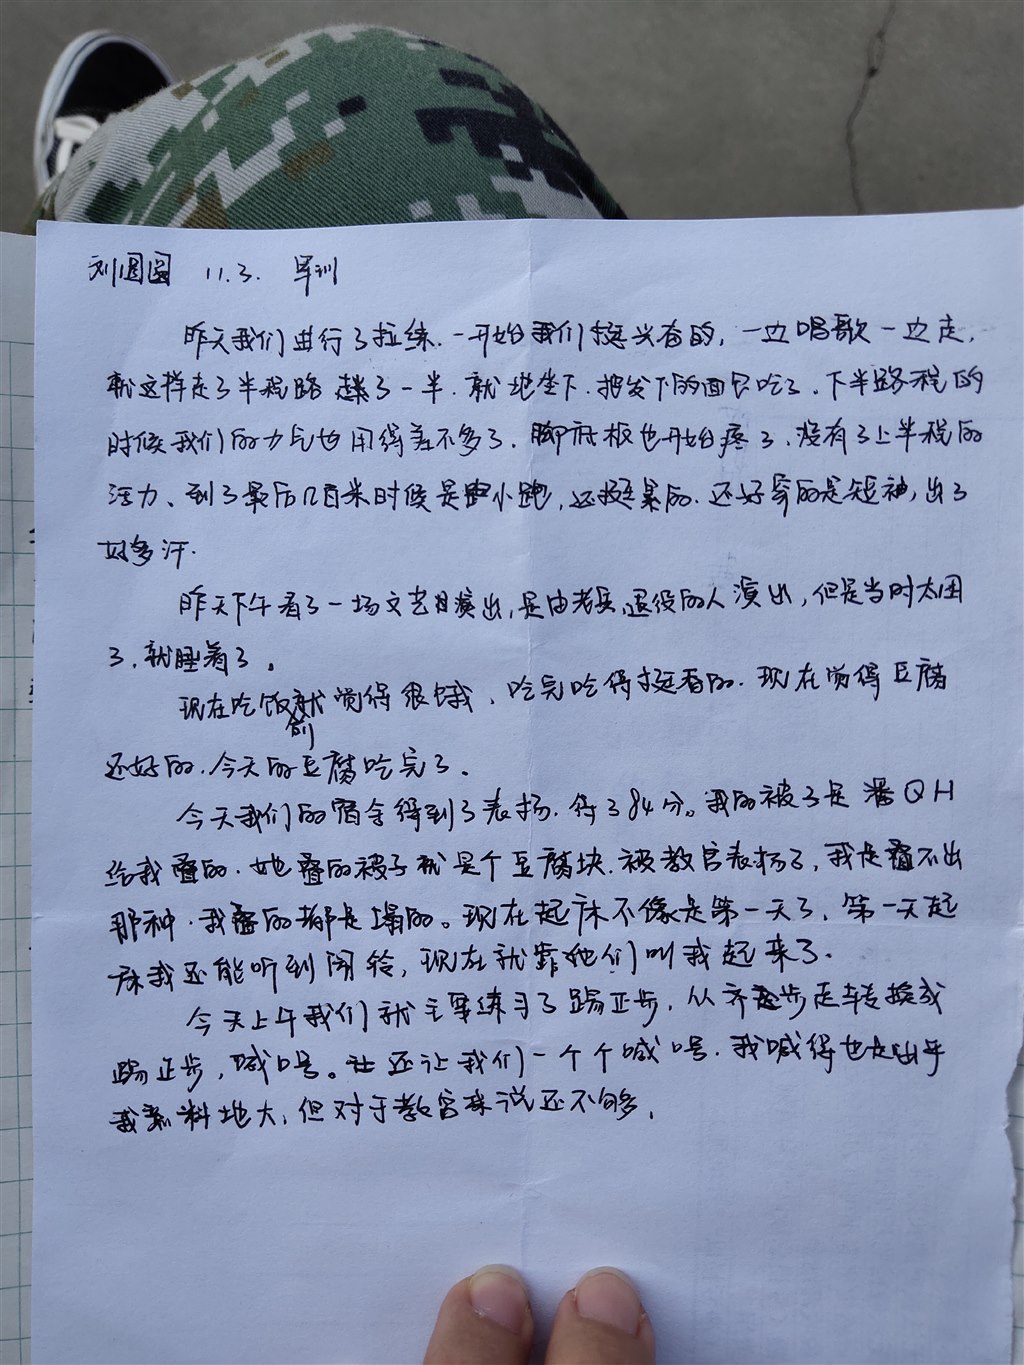 刘圆圆 11.3. 军训
昨天我们进行了拉练.一开始我们挺兴奋的,一边唱歌一边走,
就这样走了半程路 走了一半.就地坐下.把发下的面包吃了.下半路程的
时候我们的力气也用得差不多了.脚底板也开始疼了.没有了上半程的
活力、到了最后几百米时候是小跑,还挺累的.还好穿的是短袖,出了
好多汗.
昨天下午看了一场文艺演出,是由老兵,退役的人演出,但是当时太困
了,就睡着了。
现在吃饭前就觉得很饿,吃完吃得挺香的.现在觉得豆腐
还好的.今天的豆腐吃完了。
今天我们的宿舍得到了表扬.得了84分。我的被子是潘QH
给我叠的.她叠的被子就是个豆腐块.被教官表扬了,我是叠不出
那种.我叠的都是塌的。现在起床不像是第一天了,第一天起
床我还能听到闹铃,现在就靠他们叫我起来了.
今天上午我们就主要练习了踢正步,从齐步走转换成
踢正步,喊口号。还让我们一个个喊口号.我喊得也是出乎
我意料地大,但对于教官来说还不够,